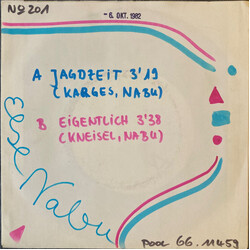 No 201
- 6. OKT. 1982
A JAGDZEIT 3'19
(KARGES, NABU)
B EIGENTLICH 3'38
(KNEISEL, NABU)
Else Nabu
pool 66.11459